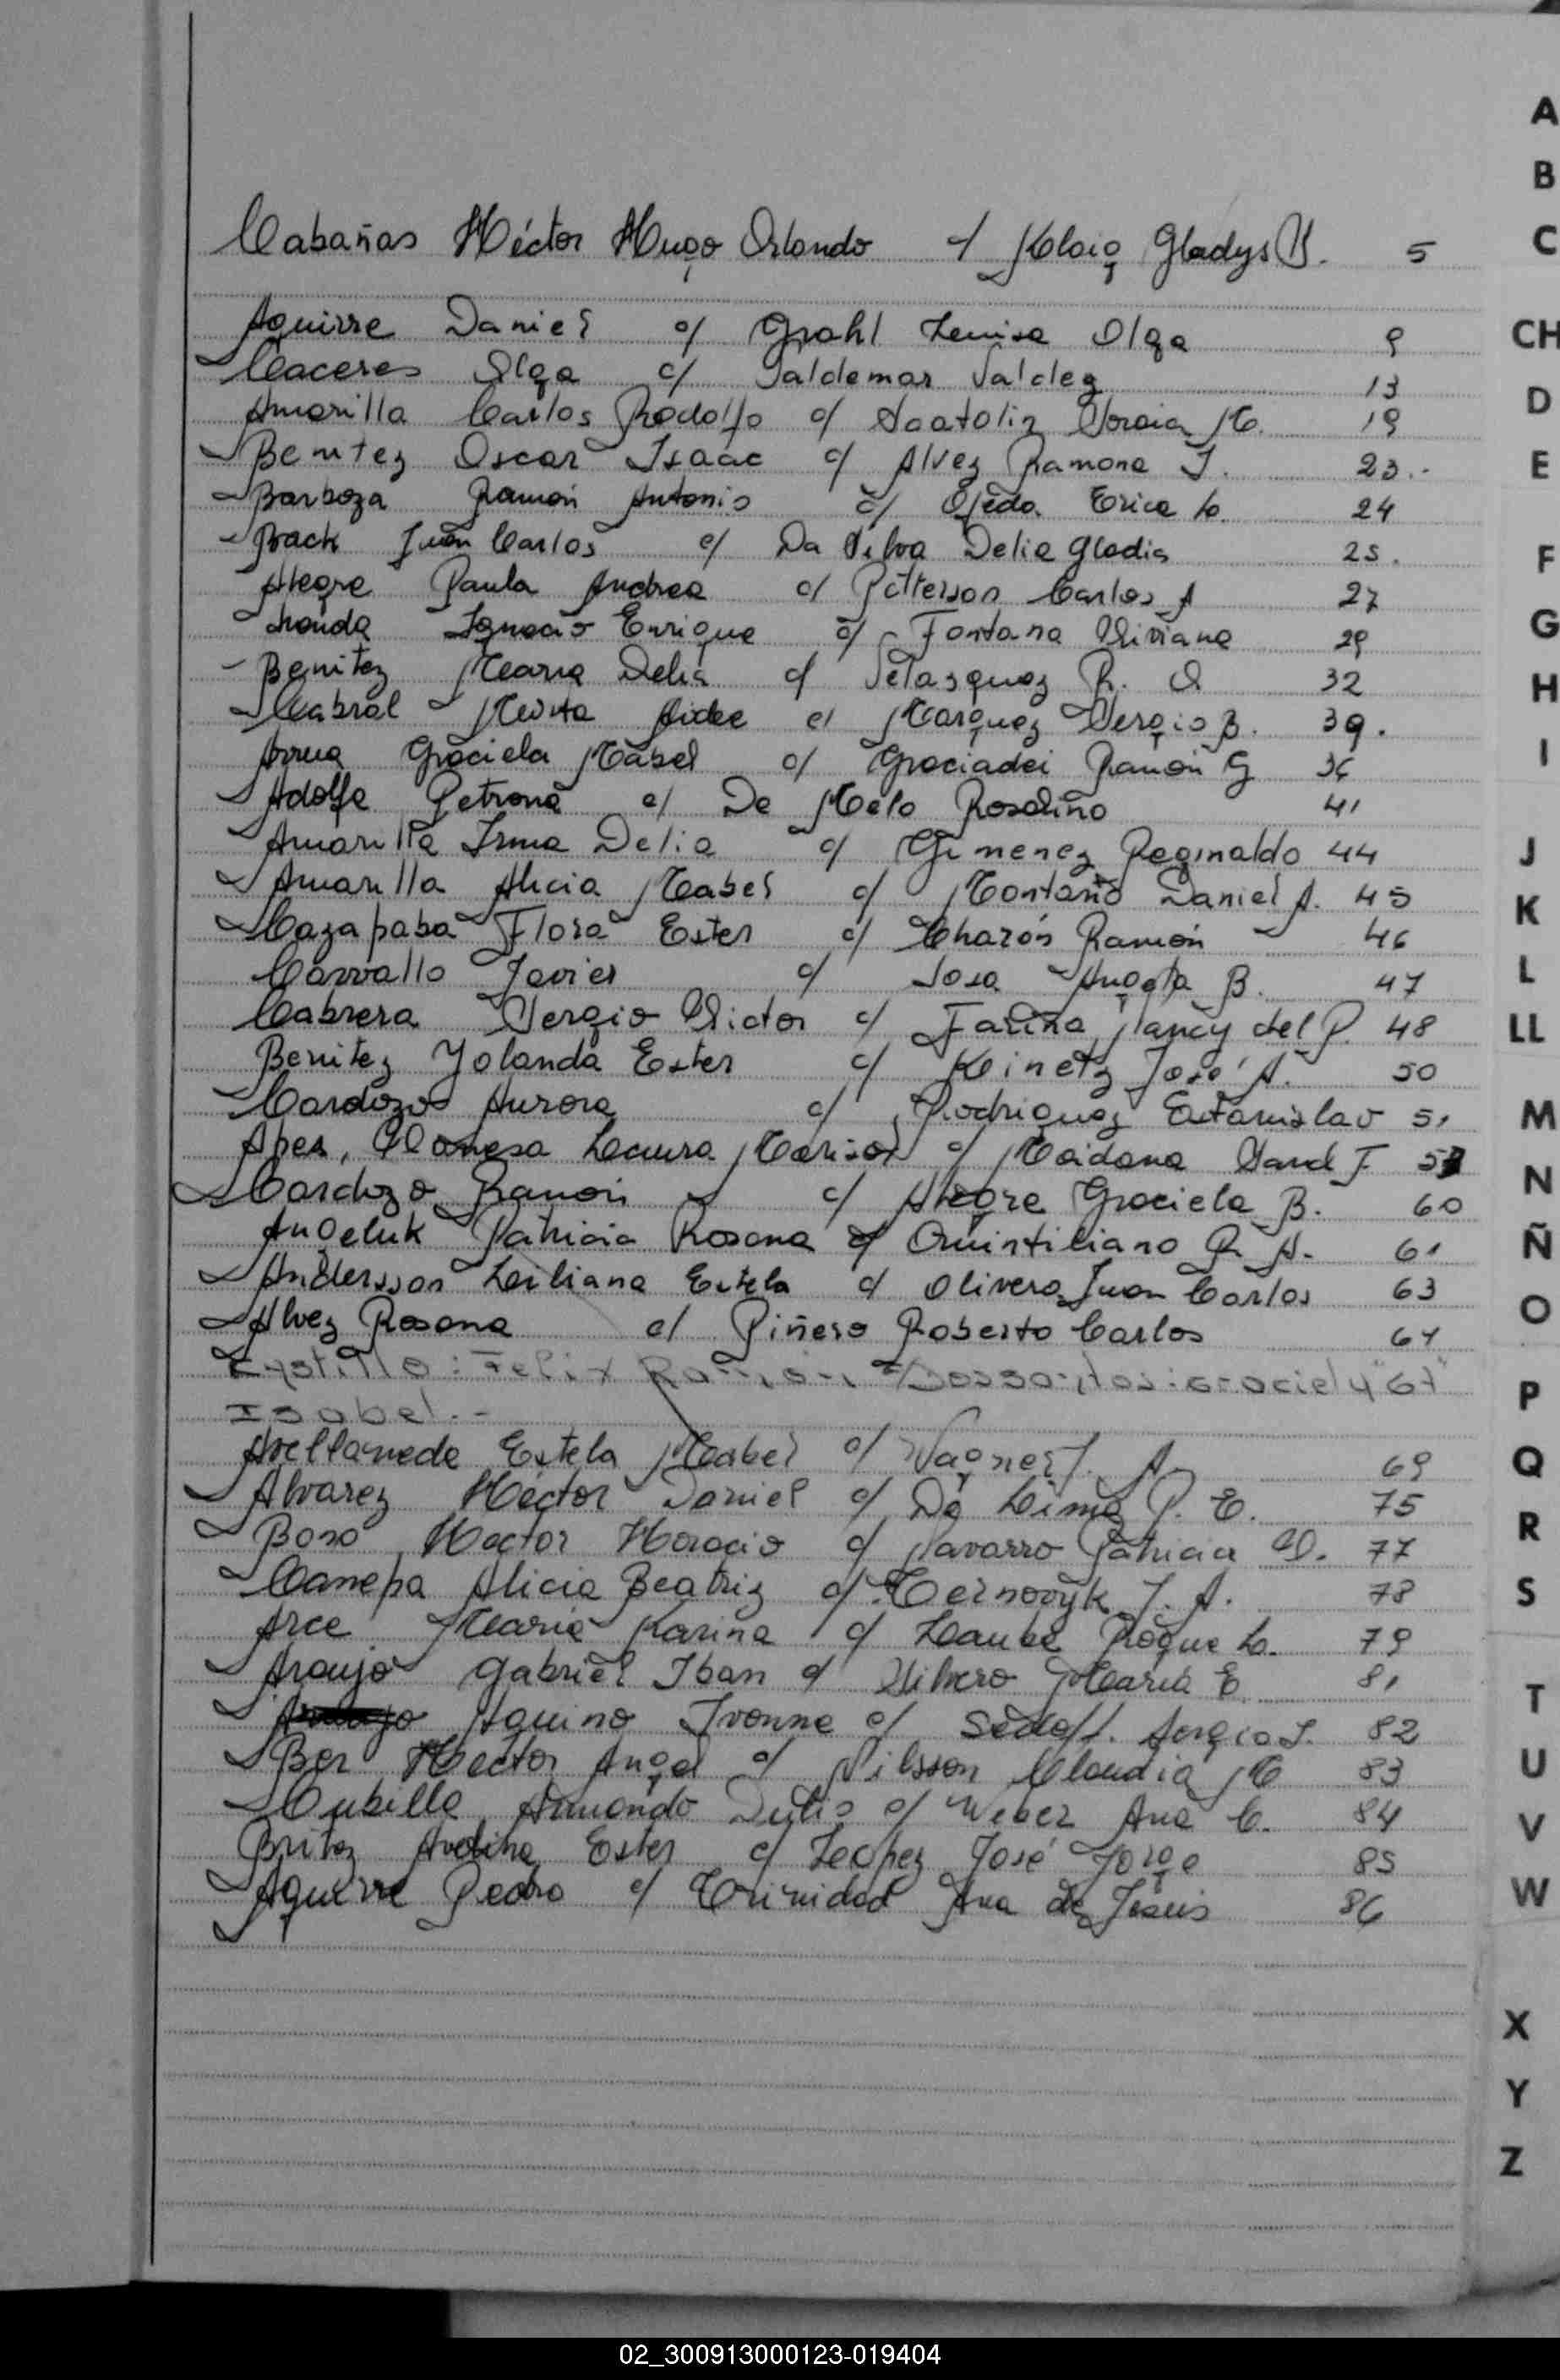 Cabañas Héctor Hugo Orlando c/ Kloig Gladys B. 5
Aguirre Daniel c/ Grahl Lenisa Olga 9
Caceres Olga c/ Valdemar Valdez 13
Amarilla Carlos Rodolfo c/ M. 19
Benitez Oscar Isaac c/ Alvez Ramona I. 23.
Barboza Ramón Antonio c/ Ojeda Erica L. 24
Back Juan Carlos c/ Da Silva Delia Gladis 25.
Alegre Paula Andrea c/ Petterson Carlos A 27
Ignacio Enrique c/ Fontana Viviana 29
Benitez Maria Delia c/ Velasquez R. O 32
Cabral Mirta Aidee c/ Marquez Sergio B. 39.
Arrua Graciela Mabel c/ Graciadei Ramón G 36
Adolfa Petrona c/ De Melo Rosalino 41
Amarilla Irma Delia c/ Gimenez Reginaldo 44
Amarilla Alicia Mabel c/ Montaño Daniel A. 45
Cazapaba Flora Ester c/ Charón Ramón 46
Carvallo Javier c/ Sosa Angela B. 47
Cabrera Sergio Victor c/ Fariña Nancy del P. 48
Benitez Yolanda Ester c/ Keinetz José A. 50
Cardozo Aurora c/ Rodriguez Estanislao 51
Laura Marisol c/ Maidana F. 
Cardozo Ramón c/ Alegre Graciela B. 60
Angeluk Patricia Rosana c/ Quintiliano R. A. 61
Andersson Liliana Estela c/ Olivera Juan Carlos 63
Alvez Rosana c/ Piñero Roberto Carlos 64
Castillo: Felix Ramón c/ Dos Santos: Graciela "67"
Isabel.-
Avellaneda Estela Mabel c/ Wagner J. A. 69
Alvarez Héctor Daniel c/ Da Lima P. E. 75
Boso Hector Horacio c/ Navarro Patricia 77
Canepa Alicia Beatriz c/ J. A. 78
Arce Maria Karina c/ Laube Roque L. 79
Araujo Gabriel Iban c/ Silvero Maria E. 81
Araujo Aquino Ivonne c/ Sedoff. Sergio J. 82
Ber Hector Angel c/ Nilsson Claudia M 83
Cubilla Armando Julio c/ Weber Ana C. 84
Britez Avelina Ester c/ Leopez José Jorge 85
Aguirre Pedro c/ Trinidad Ana de Jesús 86
A
B
C
CH
D
E
F
G
H
I
J
K
L
LL
M
N
Ñ
O
P
Q
R
S
T
U
V
W
X
Y
Z
02_300913000123-019404